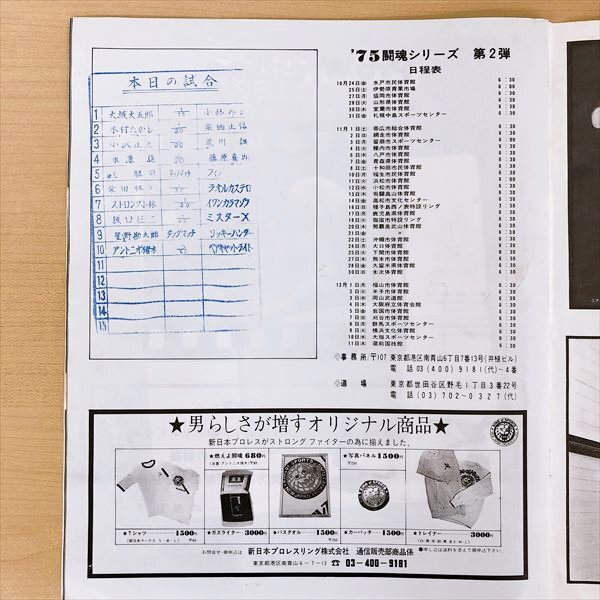 本日の試合
1 大城大五郎 小林
2 木村たかし 20 栄勇
3 小沢正志 20 荒川
4 水原 20 藤原喜明
5 タッグマッチ
6 20 ラオルカステロ
7 ストロング小林 30 イワンカラマゾフ
8 坂口征二 ミスターX
9 星野勘太郎 タッグマッチ リッキーハンター
10 アントニオ猪木
11
12
13
14
15
'75闘魂シリーズ 第2弾
日程表
10月24日(金) 水戸市民体育館 6:30
25日(土) 伊勢原青果市場 6:00
27日(月) 盛岡市体育館 6:30
28日(火) 山形県体育館 6:30
30日(木) 室蘭市体育館 6:30
31日(金) 札幌中島スポーツセンター 6:30
11月1日(土) 帯広市総合体育館 6:30
2日(日) 網走市体育館 6:30
3日(月) 留萌市スポーツセンター
4日(火) 稚内市体育館 6:30
6日(木) 八戸市体育館 6:30
7日(金) 青森県体育館 6:30
8日(土) 十和田市民体育館 6:30
10日(月) 福生市民体育館 6:30
11日(火) 浜松市体育館
12日(水) 小松市体育館 6:30
13日(木) 飛騨高山体育館 6:30
14日(金) 高松市文化センター 6:30
15日(土) 種子島西ノ表特設リング
17日(月) 鹿児島県体育館 6:30
18日(火) 指宿市特設リング 6:30
20日(木) 那覇奥武山体育館 6:30
21日(金) 〃 6:30
22日(土) 沖縄市体育館 6:30
24日(月) 大口体育館 6:30
25日(火) 下関市体育館 6:30
27日(木) 熊本市体育館 6:30
28日(金) 久留米県体育館 6:30
30日(日) 木次体育館 6:30
12月1日(月) 福山市体育館 6:30
2日(火) 米子市体育館 6:30
3日(水) 岡山武道館 6:30
4日(木) 大阪府立体育会館 6:30
5日(金) 岩国市体育館 6:30
7日(日) 刈谷市体育館 6:30
8日(月) 群馬スポーツセンター 6:30
9日(火) 横浜文化体育館 6:30
10日(水) 大垣スポーツセンター 6:30
11日(木) 蔵前国技館 6:30
◇事務所/〒107 東京都港区南青山6丁目7番13号(井植ビル)
電話 03(400)9181(代)〜4番
◇道場 東京都世田谷区野毛1丁目3番22号
電話 03(702)0327(代)
★男らしさが増すオリジナル商品★
新日本プロレスがストロング ファイターの為に揃えました。
★燃えよ闘魂 680円
(自書 アントニオ猪木)〒80
★写真パネル 1500円
〒250
★Tシャツ 1500円
★ガスライター 3000円
★バスタオル 1500円
★カーバッヂ 1500円
★トレイナー 3000円
お問合せ・御申込は 新日本プロレスリング株式会社 通信販売部商品係
●申し込は送料を添えて御申込下さい。
東京都港区南青山6-7-13 ☎03-400-9181